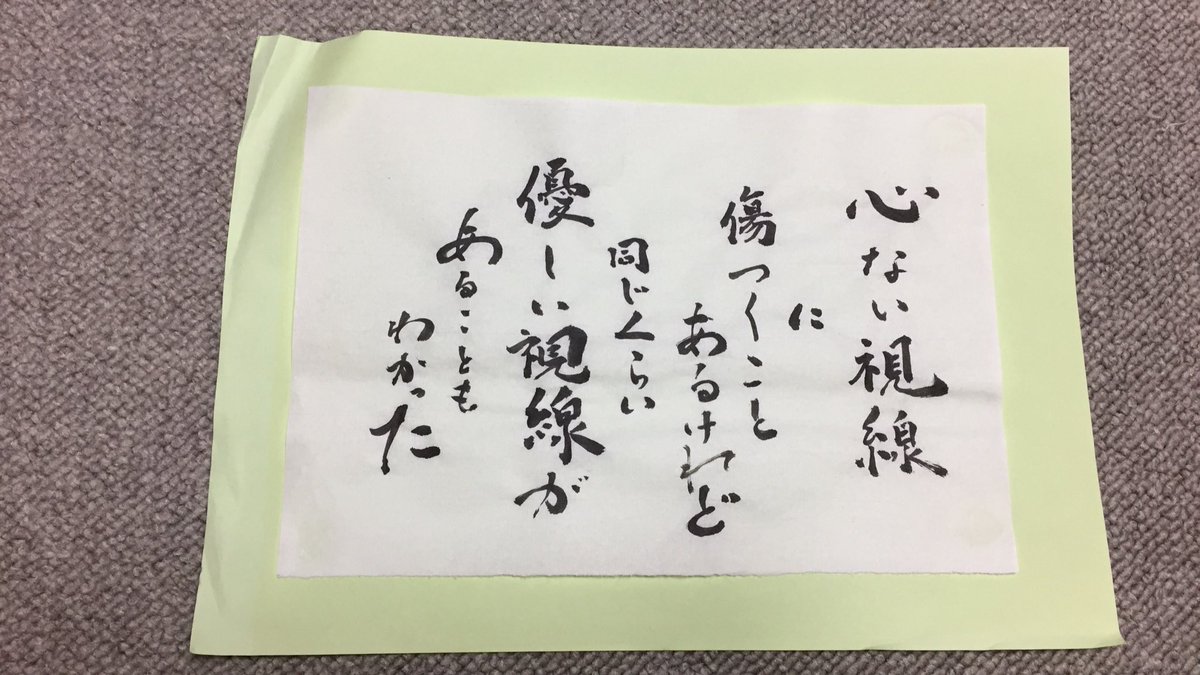 心ない視線
に
傷つくこと
あるけれど
同じくらい
優しい視線が
あることも
わかった